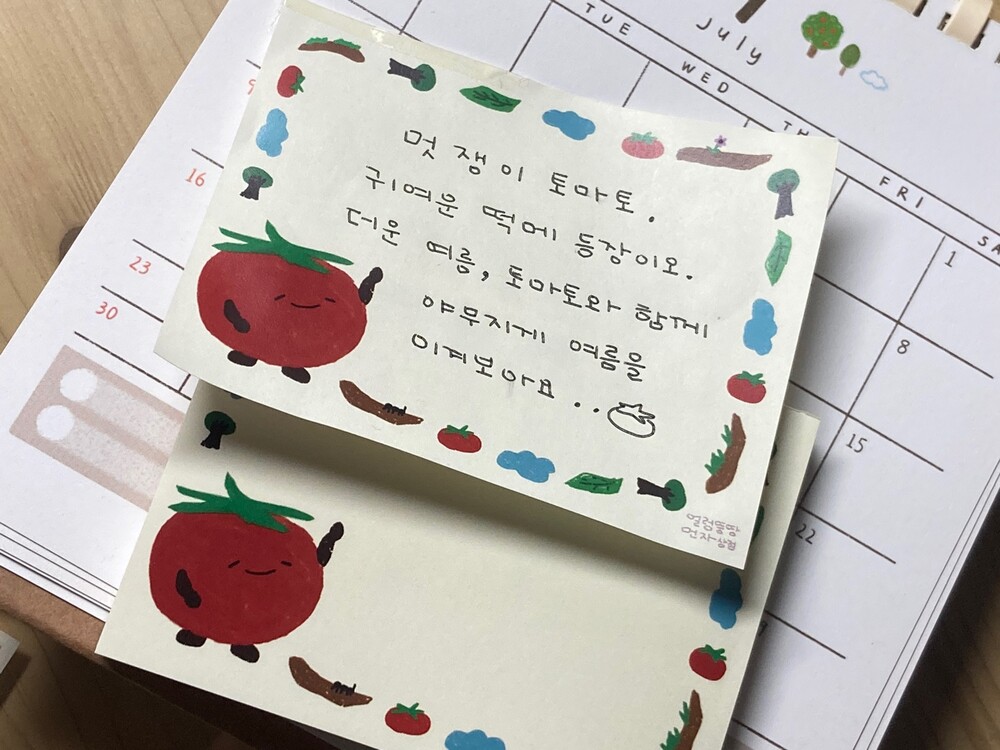 July
TUE WED TH FRI SA
1
8
15
22
16
23
30
멋쟁이 토마토.
귀여운 떡메 등장이오.
더운 여름, 토마토와 함께
야무지게 여름을
이겨보아요..
얼렁뚱땅